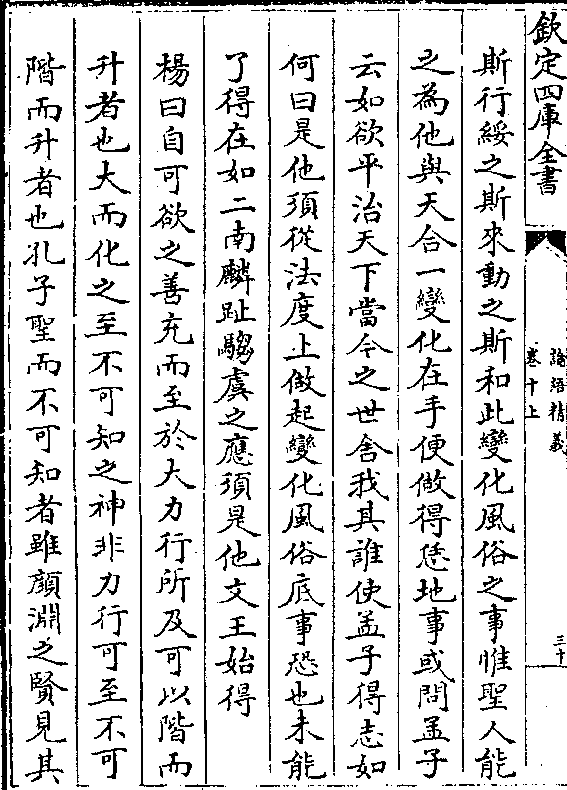 欽定四庫全書
論語精義
卷十上
三十
斯行綏之斯來動之斯和此變化風俗之事惟聖人能
之為他與天合一變化在手便做得恁地事或問孟子
云如欲平治天下當今之世舍我其誰使孟子得志如
何曰是他須從法度上做起變化風俗底事恐也未能
了得在如二南麟趾騶虞之應須是他文王始得
楊曰自可欲之善充而至於大力行所及可以階而
升者也大而化之至不可知之神非力行可至不可
階而升者也孔子聖而不可知者雖顏淵之賢見其